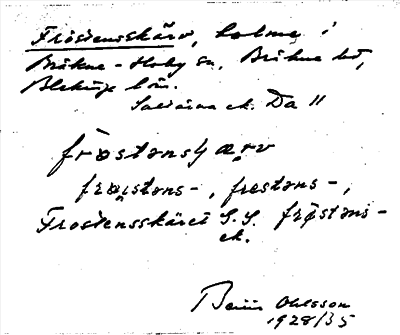 Frostensskärv, holme i
Bräkne-Hoby sn, Bräkne hd,
Blekinge län.
Saltärna ek. Da 11
frøstonsʃærv
frøistons-, frestons-,
Frostensskäret S.S. frøstons-
ek.
Bertil Ohlsson
1928/35